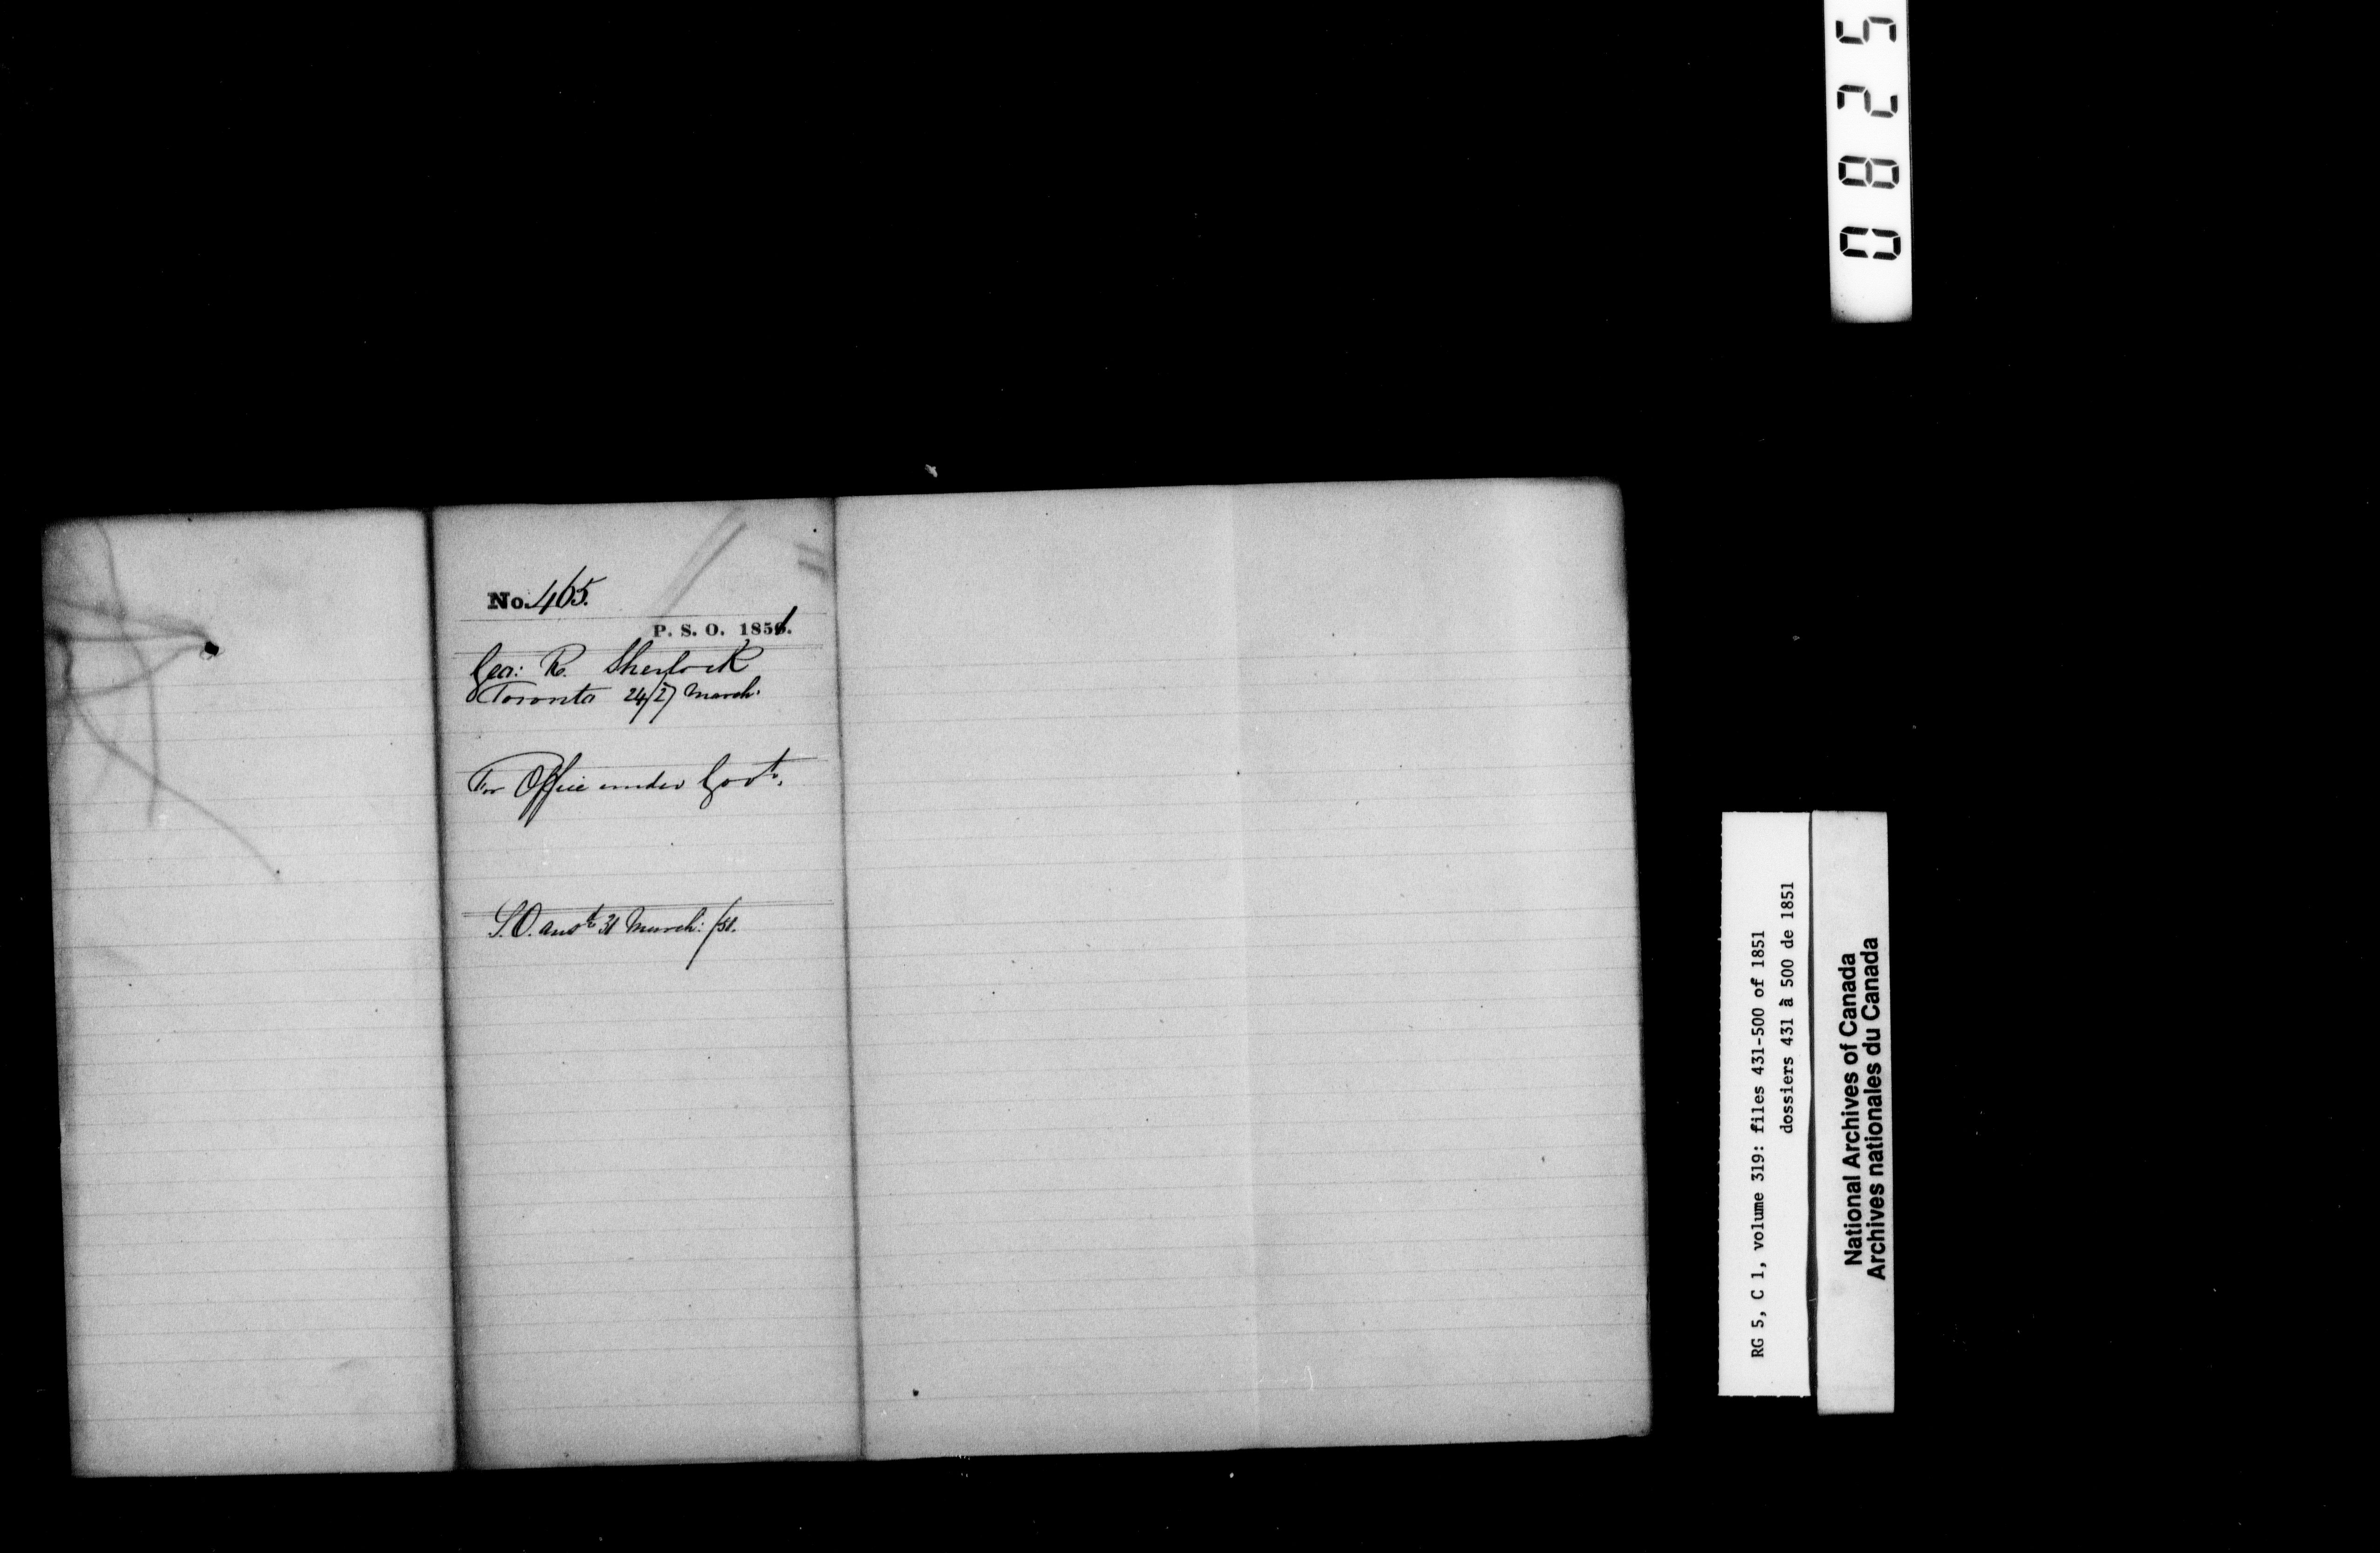 No. 465.
P. S. O. 1851.
Geo: R. Sherlock
Toronto 24/27 March.
For Office under Govt.
S.O. ansd 31 March: /51.
0825
RG 5, C 1, volume 319: files 431-500 of 1851
dossiers 431 à 500 de 1851
National Archives of Canada
Archives nationales du Canada